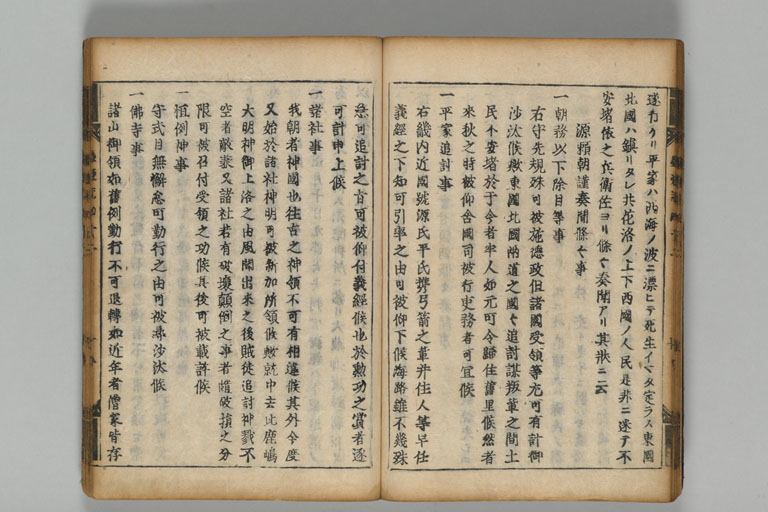 遂行ケリ平家ハ西海ノ波ニ漂ヒテ死生イマタ定ラス東国
北國ハ鎮リタレ共花洛ノ上下西國ノ人民是非ニ迷テ不
安堵依之兵衛佐ヨリ條々奏聞アリ其状ニ云
源頼朝謹奏聞條々事
一朝務以下除目等事
右守先規殊可被施德政但諸國受領等尤可有計御
沙汰候歟東國北國兩道之國々追討謀叛輩之間土
民不安堵於于今者牢人如元可令歸住舊里候然者
來秋之時被仰舎國司被行吏務者可宜候
一平家追討事
右畿内近國號源氏平氏携弓箭之輩并住人等早任
義經之下知可引率之由可被仰下候海路雖不幾殊
忩可追討之旨可被仰付義經候也於勲功之賞者逐
可計申上候
一諸社事
我朝者神國也往古之神領不可有相違候其外今度
又始於諸社神明可被新加所領候歟就中去比鹿嶋
大明神御上洛之由風聞出来之後賊徒追討神戮不
空者歟兼又諸社若有破壊顛倒之事者隨破損之分
限可被召付受領之功候其後可被裁許候
一恒例神事
守式目無懈怠可勤行之由可被尋沙汰候
一佛寺事
諸山御領如舊例勤行不可退轉如近年者僧家皆存